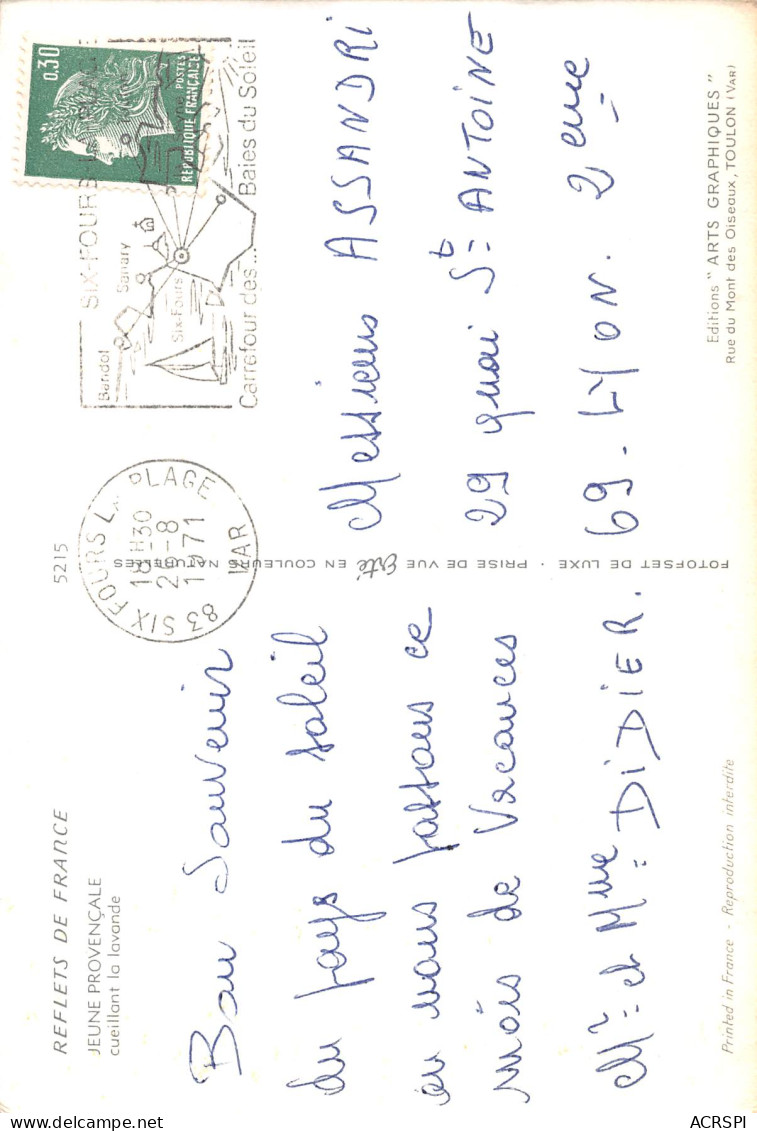 REFLETS DE FRANCE
JEUNE PROVENÇALE
cueillant la lavande
5215
Bon Souvenir
du pays du soleil
ou nous passons ce
mois de Vacances
Mr= et Mme= DIDIER.
Printed in France - Reproduction interdite
FOTOFSET DE LUXE · PRISE DE VUE Erté EN COULEURS NATURELLES
83 SIX FOURS LA PLAGE
18H30
1971
VAR
SIX-FOURS-LA-PLAGE
Bandol
Sanary
Six-Fours
Carrefour des...
Baies du Soleil
0.30
POSTES
REPUBLIQUE FRANÇAISE
Messieurs ASSANDRI
29 quai St= ANTOINE
69. LYON. 2eme
Editions "ARTS GRAPHIQUES"
Rue du Mont des Oiseaux, TOULON (VAR)
ACRSPI